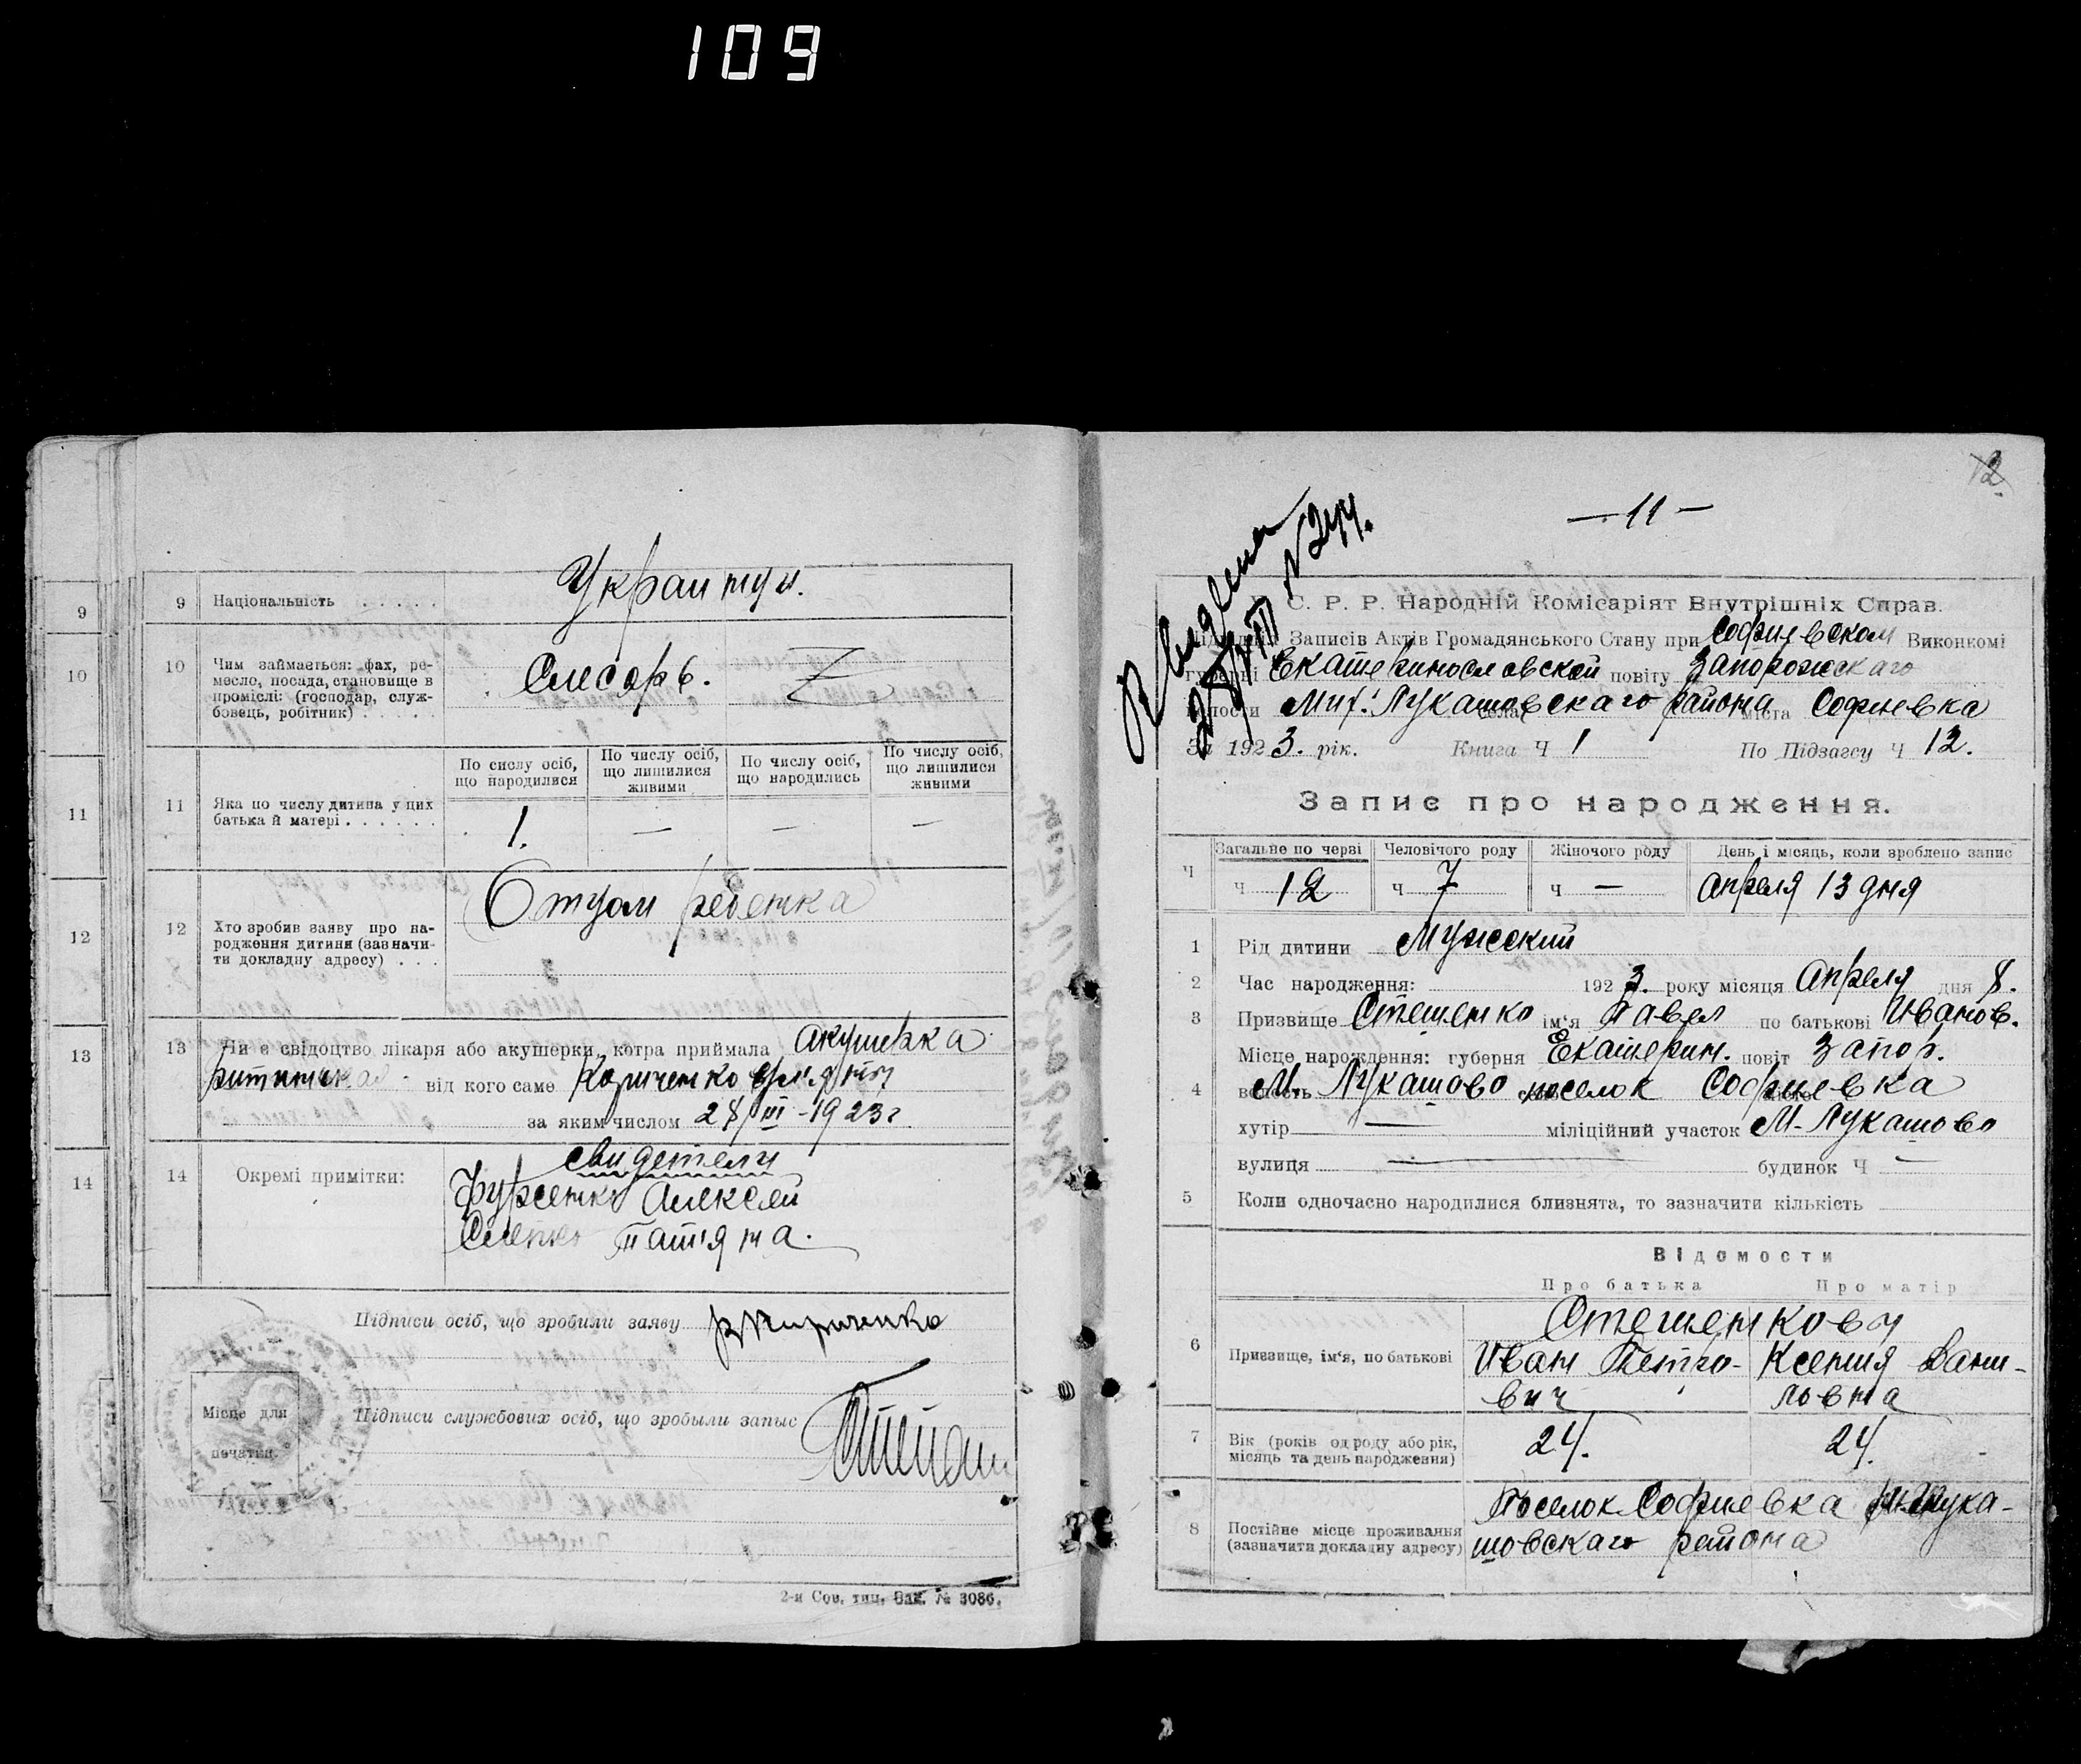 109
9 Національність . . . . . Украинцы.
10 Чим займається: фах, ре-
месло, посада, становище в
проміслі: (господар, служ-
бовець, робітник) . . . . . Слесарь.
По сислу осіб, що народилися
По числу осіб, що лишилися живими
По числу осіб, що народились
По числу осіб, що лишилися живими
11 Яка по числу дитина у цих
батька й матері . . . . . . 1. — — —
12 Хто зробив заяву про на-
родження дитини (зазначи-
ти докладну адресу) . . . Отцом ребенка
13 Чи є свідоцтво лікаря або акушерки, котра приймала акушерка
від кого саме
за яким числом 28/III-1923г.
14 Окремі примітки: свидетели
Алексей
Татьяна.
Підписи осіб, що зробили заяву Кириченко
Місце для
печатки.
Підписи службових осіб, що зробыли запыс
2-я Сов. тип. Зак. № 3086.
9
10
11
12
13
14
12
— 11 —
С. Р. Р. Народній Комісаріят Внутрішніх Справ.
Записів Актів Громадянського Стану при Софиевском Виконкомі
губерні Екатеринославской повіту Запорожскаго
волости Мих. Лукашовскаго района села міста Софиевка
За 1923. рік. Книга Ч 1 По Підзагсу Ч 12.
Запис про народження.
Ч Загальне по черзі Человічого роду Жіночого роду День і місяць, коли зроблено запис
ч 12 ч 7 ч — Апреля 13 дня
1 Рід дитини Мужеский
2 Час народження: 1923. року місяця Апреля дня 8.
3 Призвище Стешенко ім'я Павел по батькові Иванов.
4 Місце народження: губерня Екатерин. повіт Запор.
волость М. Лукашово поселок Софиевка
хутір — міліційний участок М-Лукашово
вулиця — будинок Ч —
5 Коли одночасно народилися близнята, то зазначити кількість
Відомости
Про батька Про матір
Стешенковы
6 Призвище, ім'я, по батькові Иван Петро- Ксения Дани-
вич ловна
7 Вік (років од роду або рік,
місяць та день народження) 24. 24.
8 Постійне місце проживання
(зазначити докладну адресу) Поселок Софиевка М-Лука-
шовскаго района